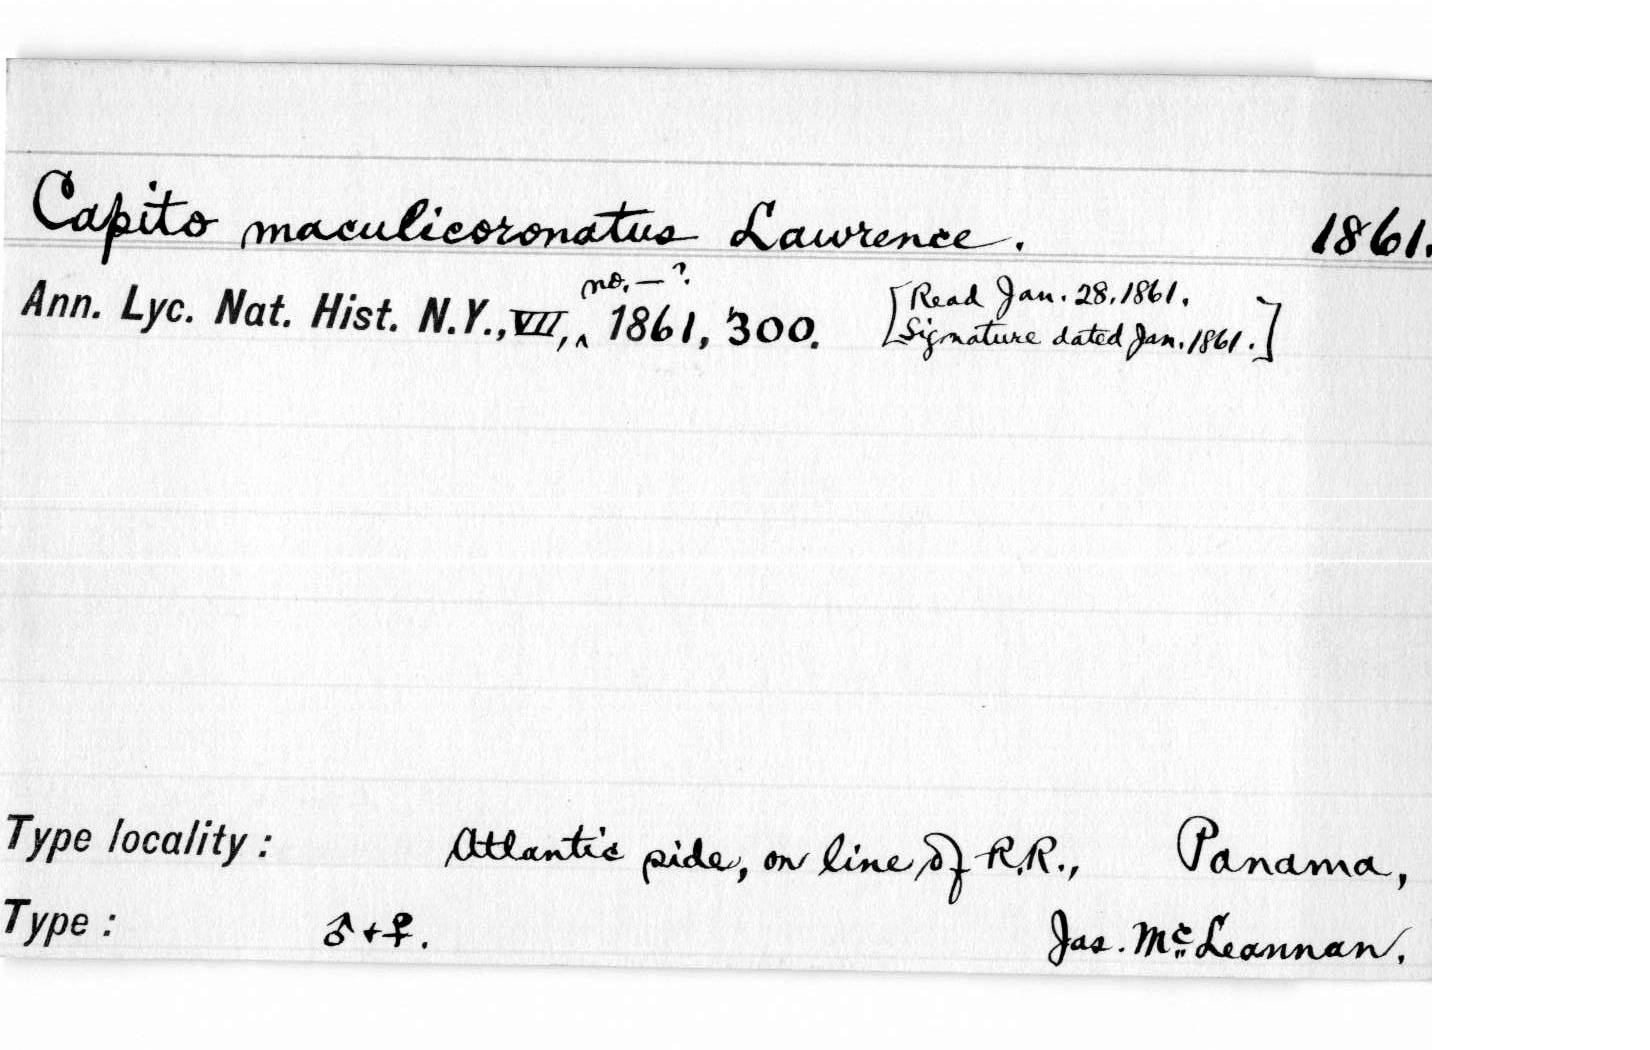 Capito maculicoronatus Lawrence. 1861.
no. — ?
Ann. Lyc. Nat. Hist. N.Y., VII, ‸ 1861, 300. [Read Jan. 28, 1861.
Signature dated Jan. 1861.]
Type locality: Atlantic side, on line of R.R., Panama,
Type: ♂ + ♀. Jas. McLeannan.